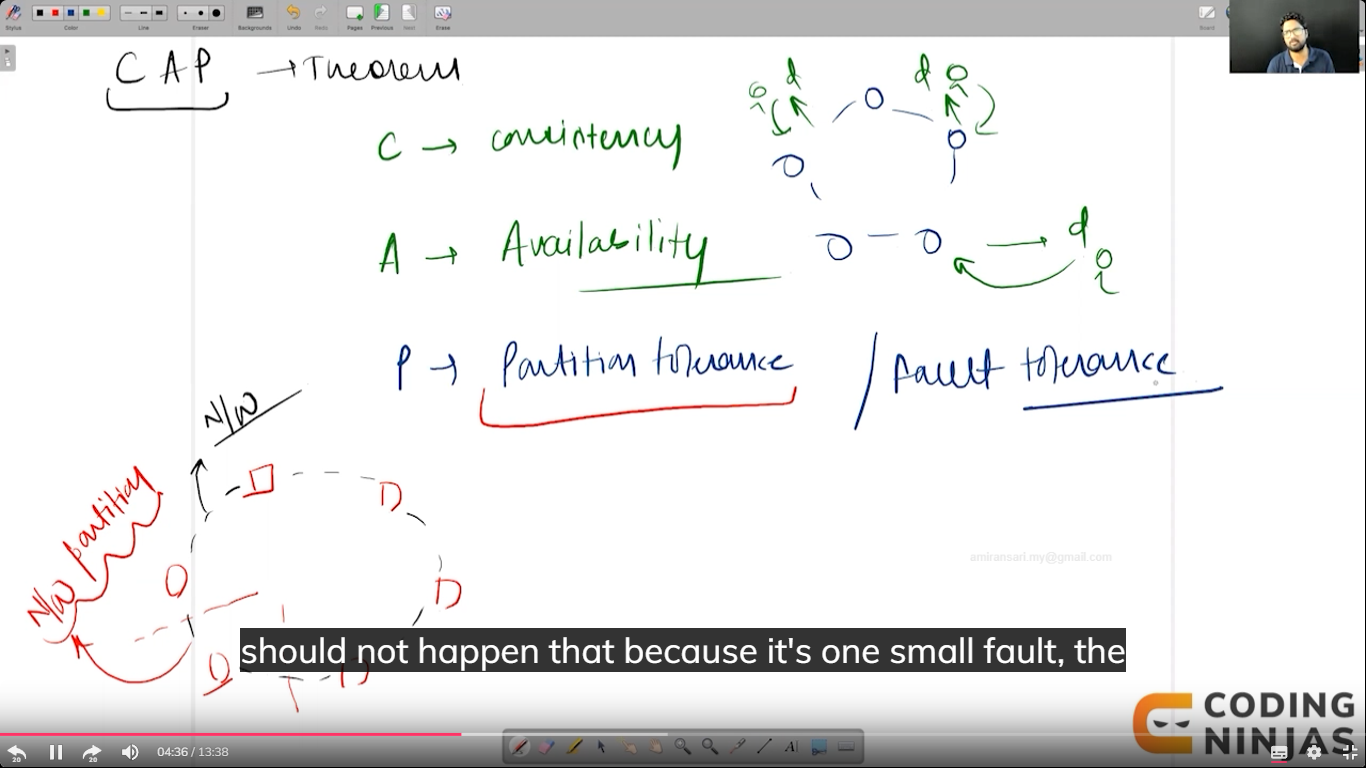 Stylus
Color
Line
Eraser
Backgrounds
Undo
Redo
Pages
Previous
Next
Erase
Board
CAP → Theorem
C → Consistency
A → Availability
P → Partition tolerance / fault tolerance
d
d
d
N/W
N/W partition
D
D
amiransari.my@gmail.com
should not happen that because it's one small fault, the
CODING
NINJAS
20
20
04:36 / 13:38